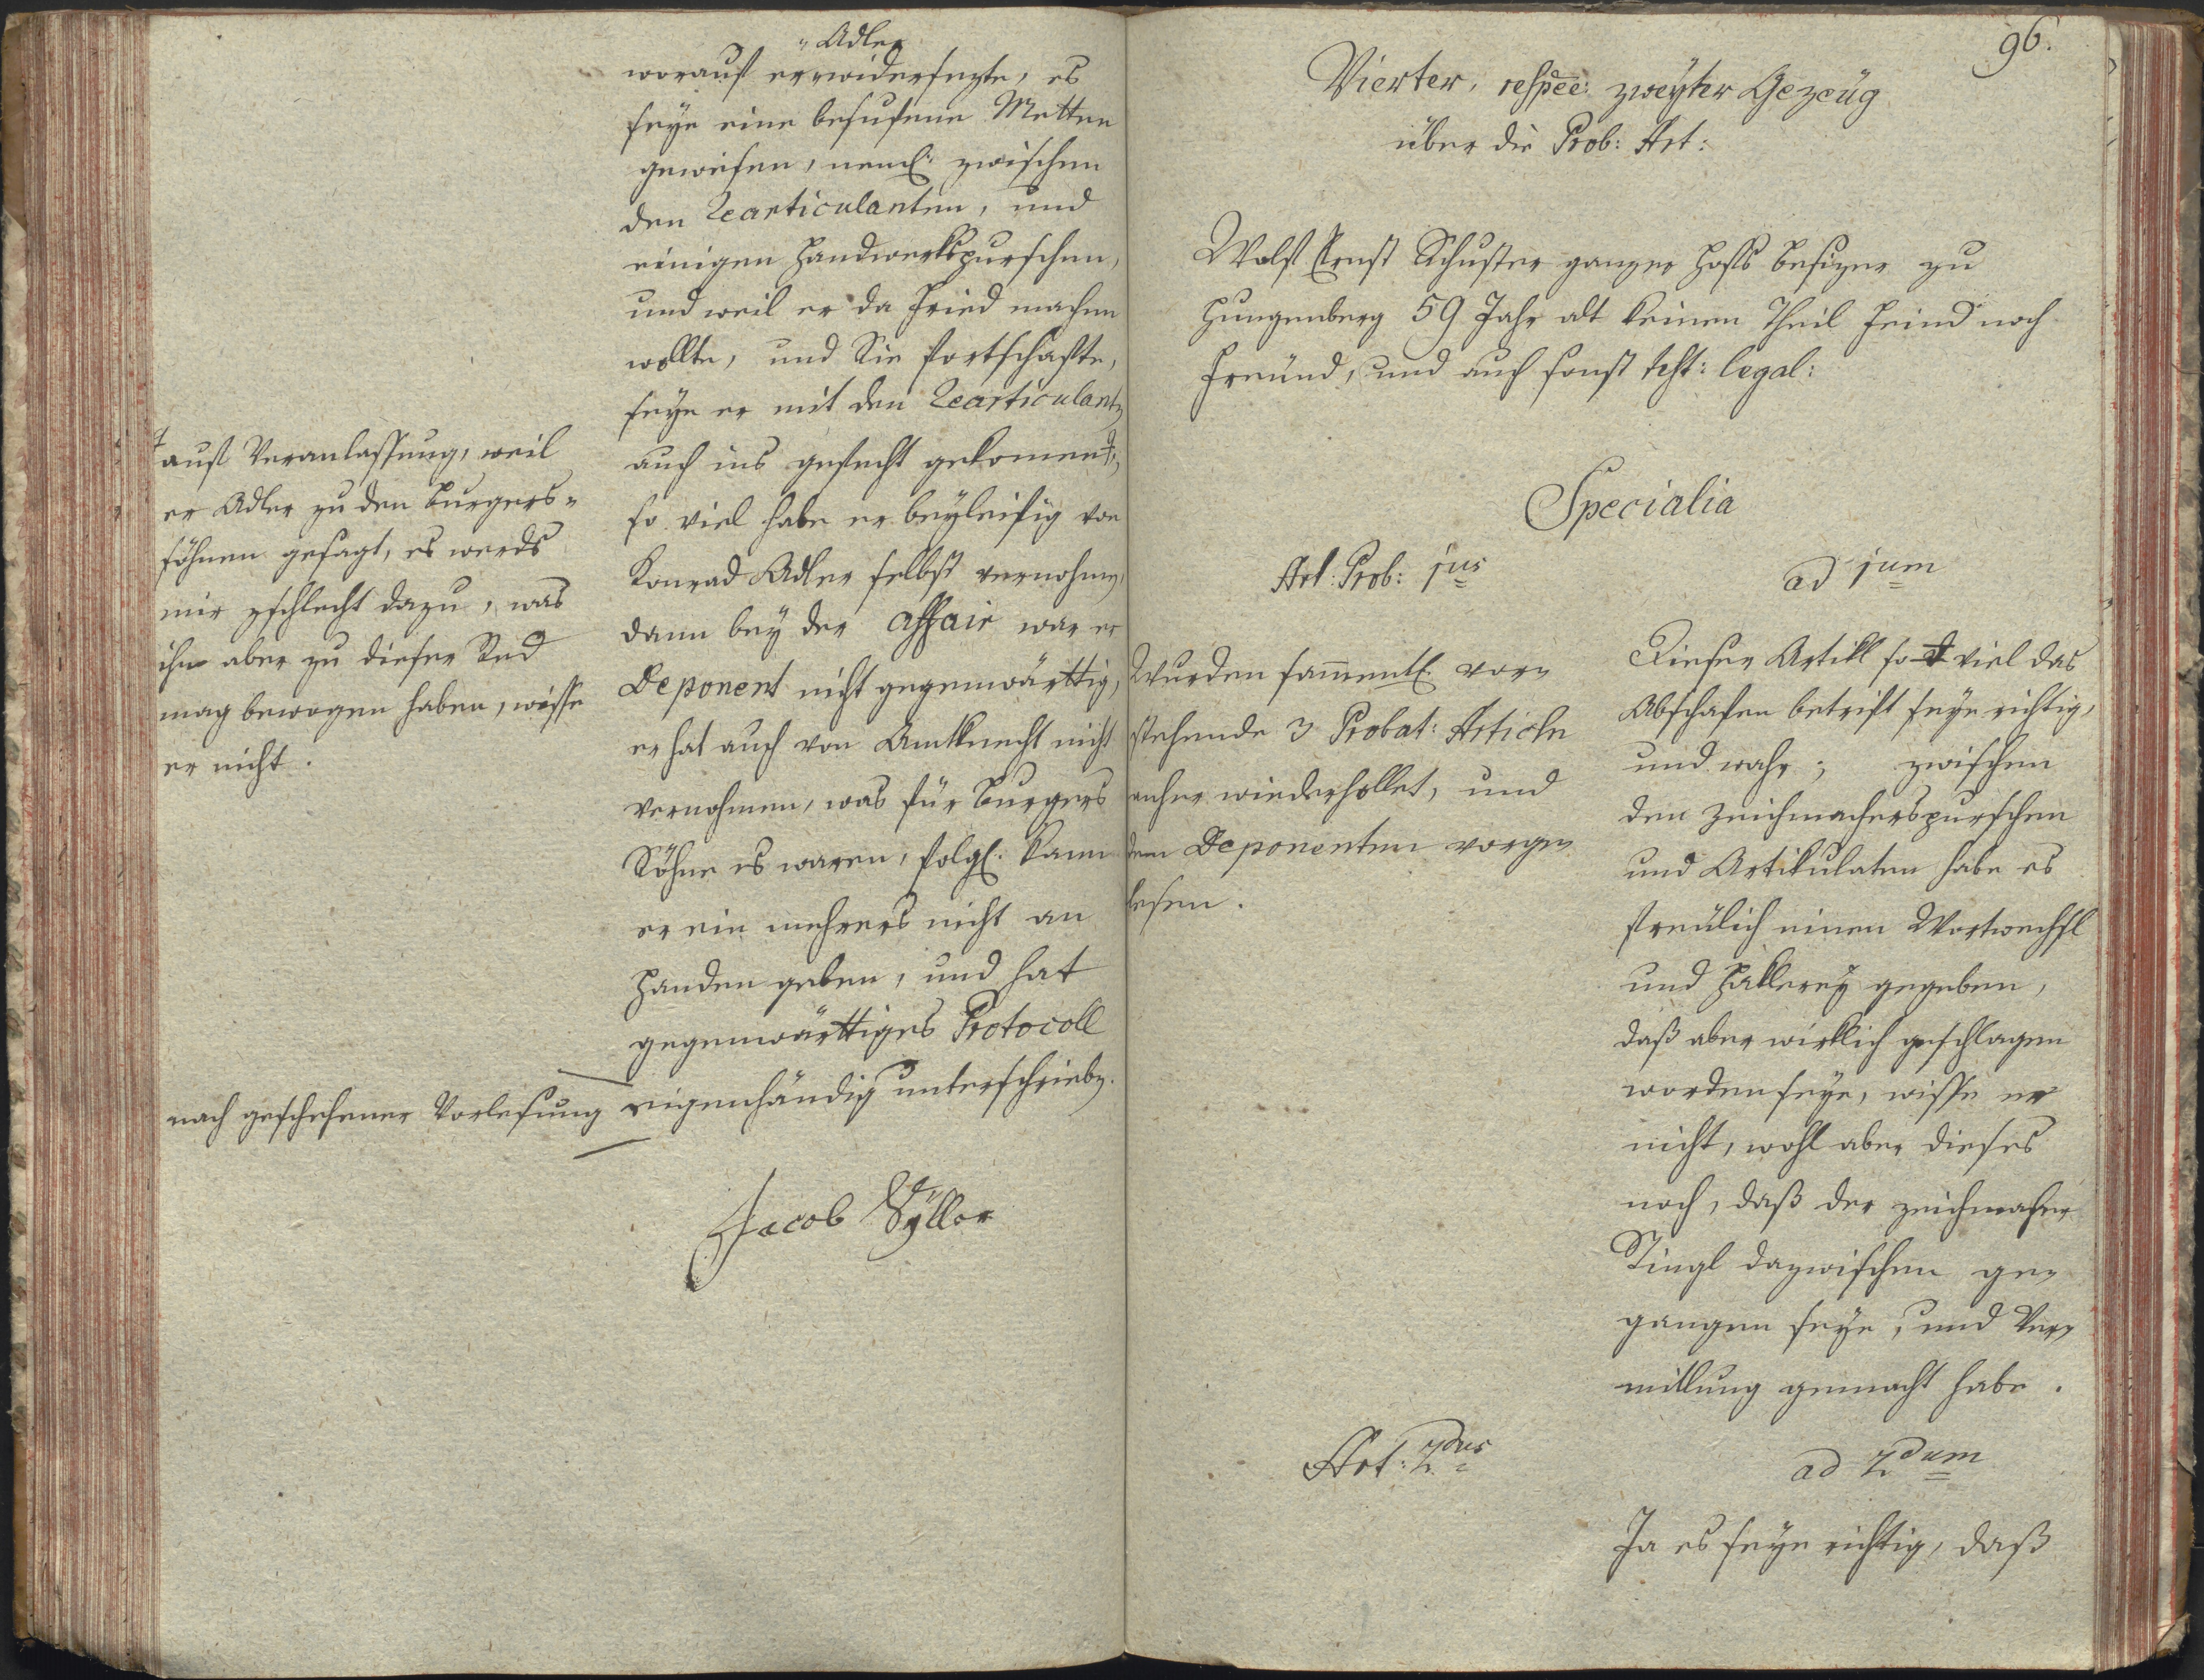 "Adler
worauf er erwidersezte, es
seye eine besufene Metten
gewesen, neml: zwischen
den Rearticulanten, und
einigen Handwerkspurschen,
und weil er da Fried machen
wollte, und Sie fortschafte,
seye er mit den Rearticulanten
auch ins gefecht gekommen ‡,
so viel habe er beyleifig von
Konrad Adler selbst vernohmen,
dann bey der affair war er
Deponent nicht gegenwärttig,
er hat auch von Amtknecht nicht
vernohmen, was für Burgers
Söhne es waren, folgl: kann
er ein mehrers nicht an
Handen geben, und hat
gegenwärttiges Protocoll
eigenhändig unterschrieben.
‡ auf Veranlassung, weil
er Adler zu den Burgers-
söhnen gesagt, es werds
mir zschlecht dazu, was
ihn aber zu dieser Red
mag bewogen haben, wisse
er nicht.
nach geschehener Vorlesung
Jacob Syller
96.
Vierter, respec: zweyter Gezeüg
über die Prob: Art:
Wolf Ernst Schuster ganzer Hofs besizer zu
Hungenberg 59 Jahr alt keinen Theil Feind noch
Freünd, und auch sonst test: legal:
Specialia
Art: Prob: 1us
ad 1um
Wurden samentl: vor-
stehende 3 Probat: Articln
anher wiederhollet, und
dem Deponenten vorge-
lesen.
Dieser Artikl so viel das
Abschafen betrift seye richtig,
und wahr; zwischen
den Zeichmacherspurschen
und Artikulaten habe es
freülich einen Wortwechsl
und Hakkerey gegeben,
daß aber wirklich geschlagen
worden seye, wisse er
nicht, wohl aber dieses
noch, daß der zeichmacher
Stingl dazwischen ge-
gangen seye, und Ver-
mittlung gemacht habe.
Art: 2dus
ad 2dum
Ja es seye richtig, daß